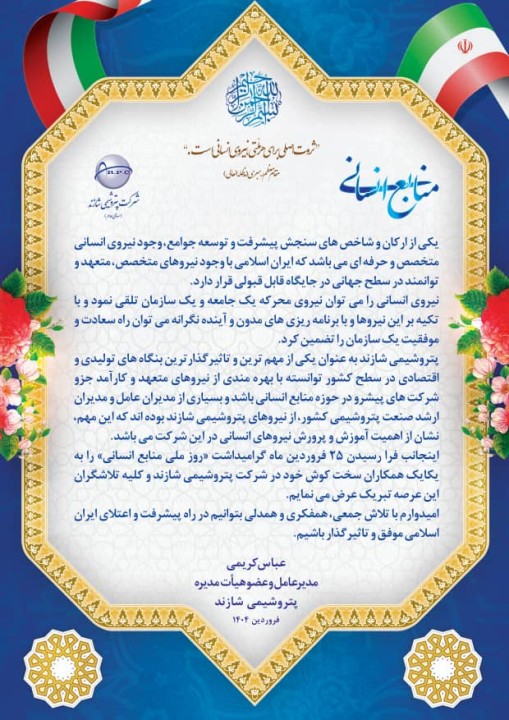 بسم الله الرحمن الرحیم
"ثروت اصلی برای هر ملتی نیروی انسانی است."
مقام معظم رهبری (مدظله العالی)
منابع انسانی
A.R.P.C
شرکت پتروشیمی شازند
(سهامی عام)
یکی از ارکان و شاخص های سنجش پیشرفت و توسعه جوامع، وجود نیروی انسانی
متخصص و حرفه ای می باشد که ایران اسلامی با وجود نیروهای متخصص، متعهد و
توانمند در سطح جهانی در جایگاه قابل قبولی قرار دارد.
نیروی انسانی را می توان نیروی محرکه یک جامعه و یک سازمان تلقی نمود و با
تکیه بر این نیروها و با برنامه ریزی های مدون و آینده نگرانه می توان راه سعادت و
موفقیت یک سازمان را تضمین کرد.
پتروشیمی شازند به عنوان یکی از مهم ترین و تاثیرگذارترین بنگاه های تولیدی و
اقتصادی در سطح کشور توانسته با بهره مندی از نیروهای متعهد و کارآمد جزو
شرکت های پیشرو در حوزه منابع انسانی باشد و بسیاری از مدیران عامل و مدیران
ارشد صنعت پتروشیمی کشور، از نیروهای پتروشیمی شازند بوده اند که این مهم،
نشان از اهمیت آموزش و پرورش نیروهای انسانی در این شرکت می باشد.
اینجانب فرا رسیدن ۲۵ فروردین ماه گرامیداشت «روز ملی منابع انسانی» را به
یکایک همکاران سخت کوش خود در شرکت پتروشیمی شازند و کلیه تلاشگران
این عرصه تبریک عرض می نمایم.
امیدوارم با تلاش جمعی، همفکری و همدلی بتوانیم در راه پیشرفت و اعتلای ایران
اسلامی موفق و تاثیرگذار باشیم.
عباس کریمی
مدیرعامل و عضو هیأت مدیره
پتروشیمی شازند
فروردین ۱۴۰۴